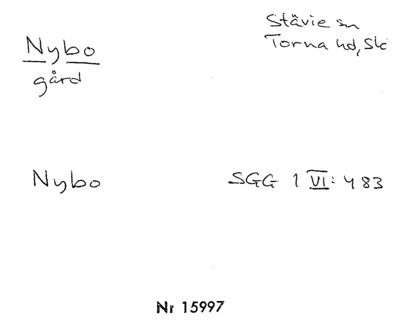 Nybo
gård
Stävie sn
Torna hd, Sk
Nybo
SGG 1 VI: 483
Nr 15997